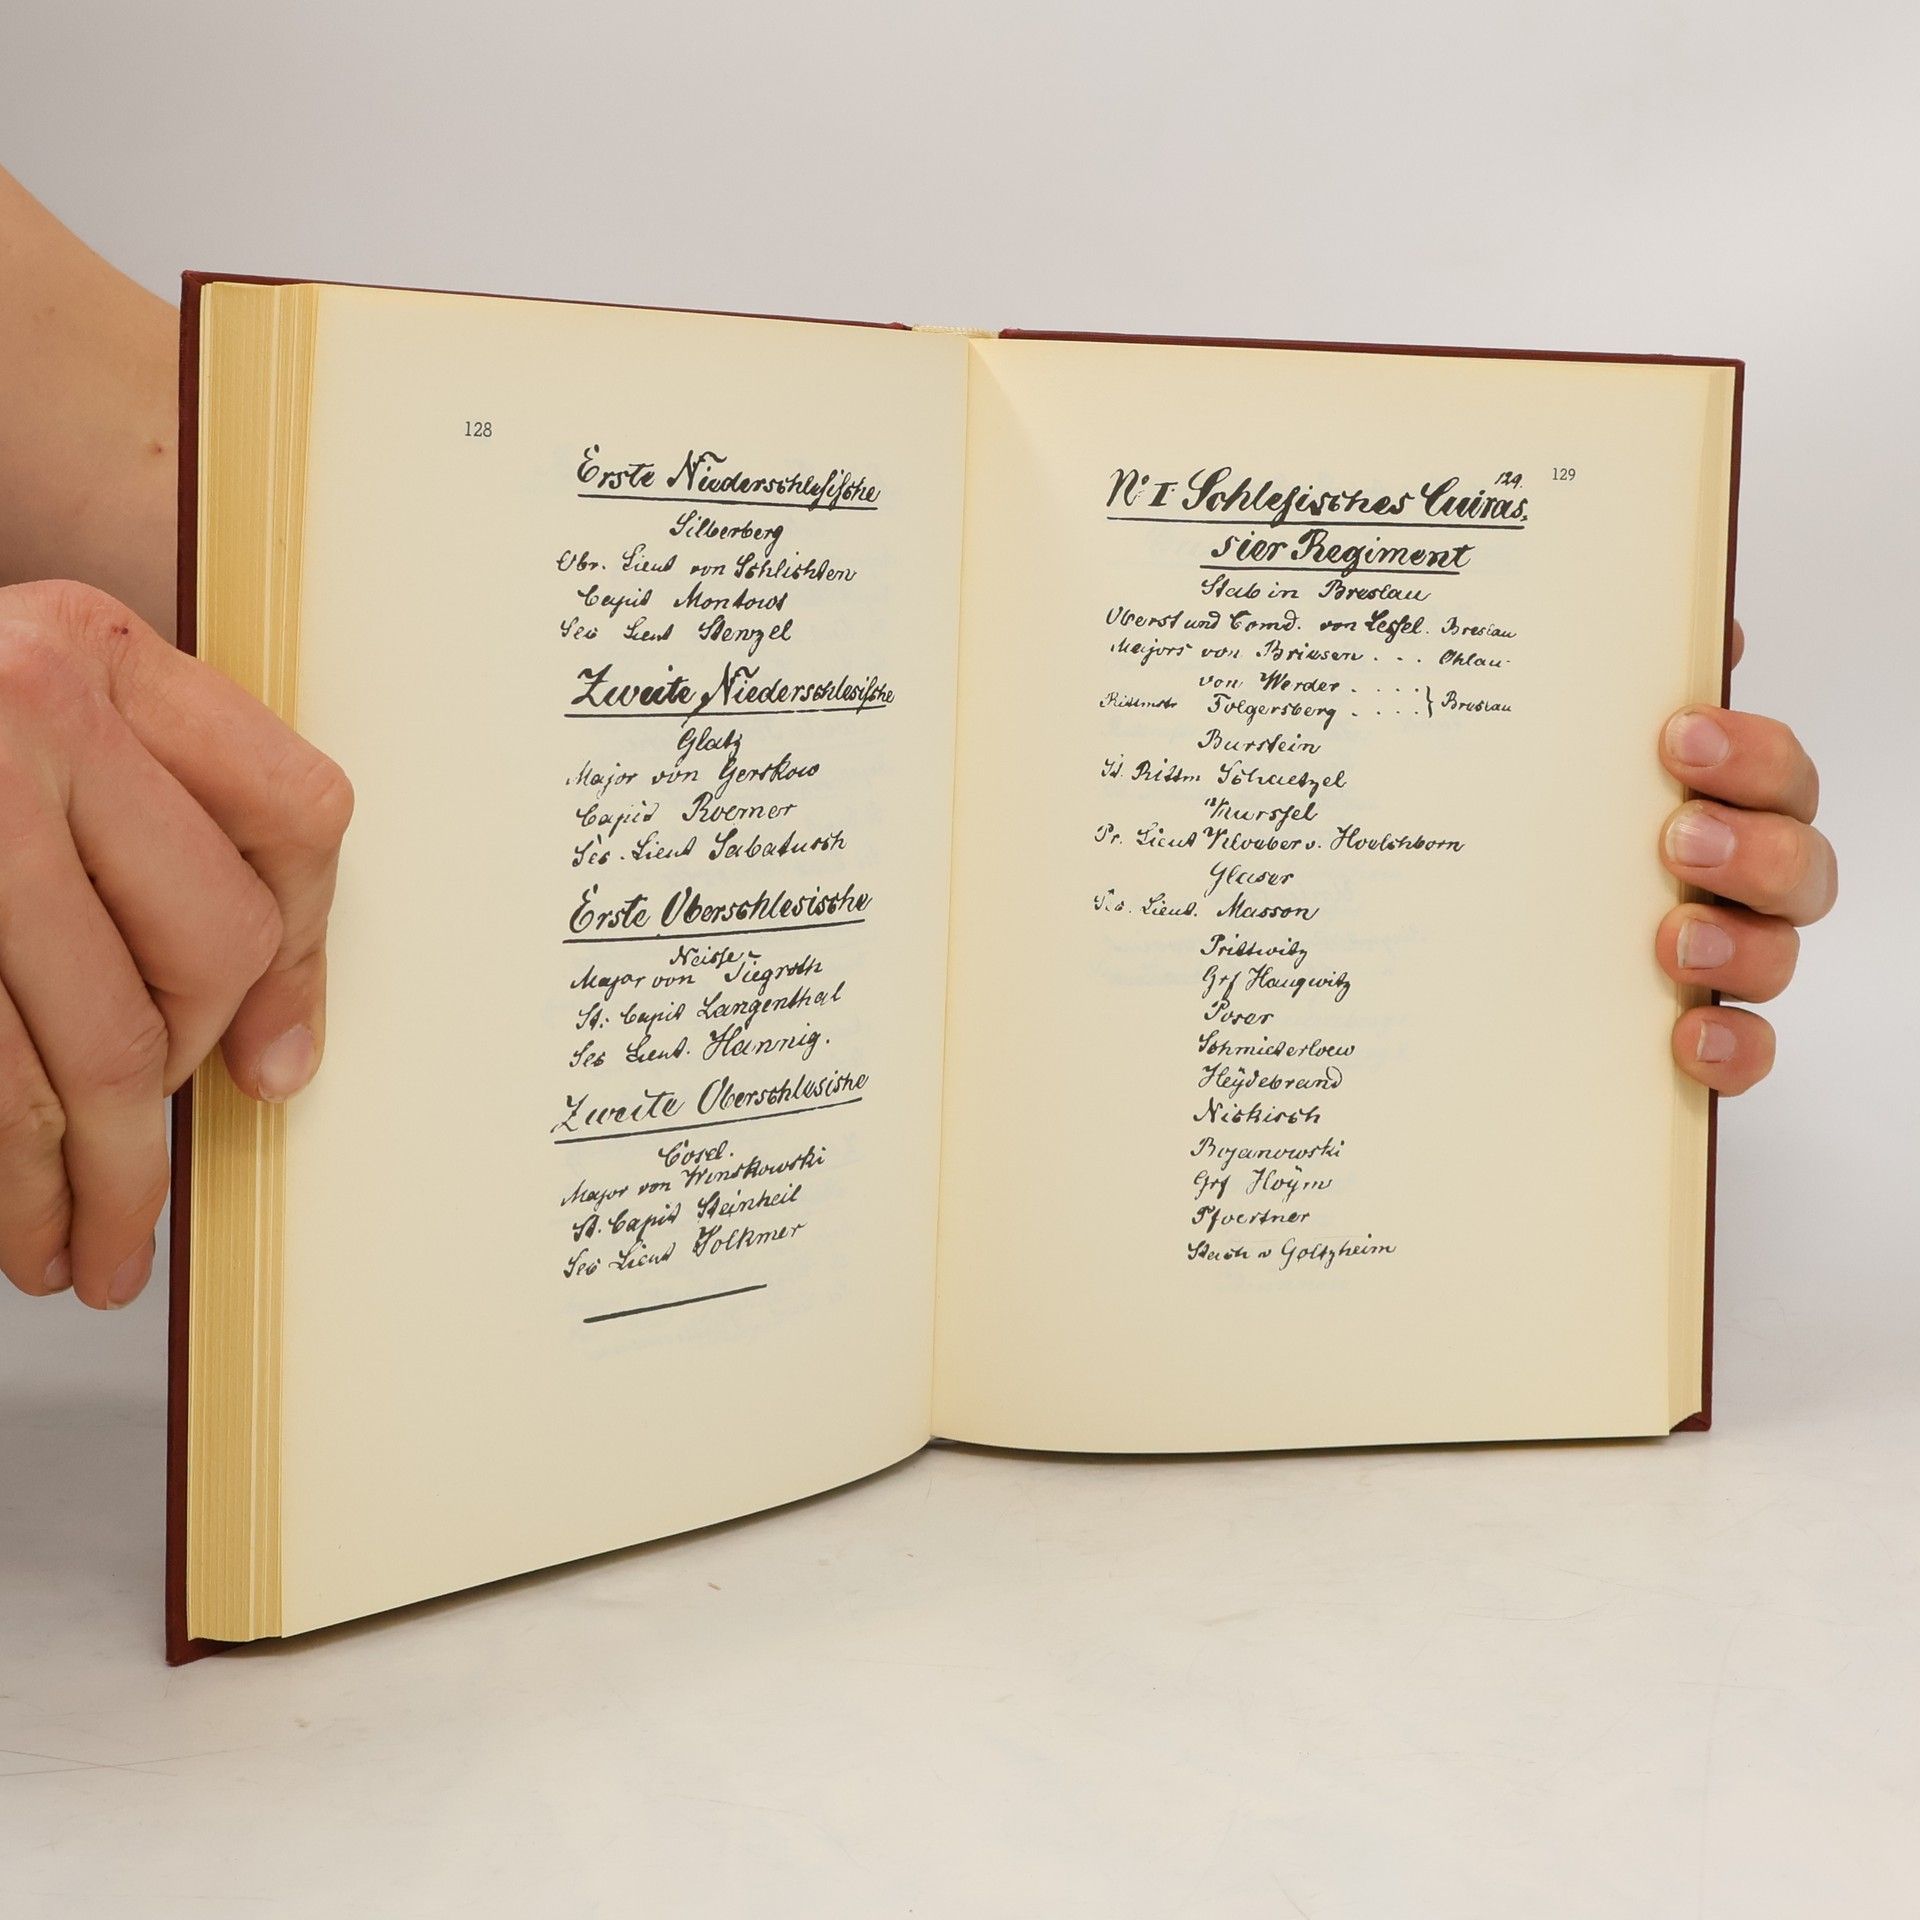 128
Erste Niederschlesische
Silberberg
Obr. Lieut von Schlichten
Capit Montowt
Sec Lieut Stenzel
Zweite Niederschlesische
Glatz
Major von Gerskow
Capit Roemer
Sec. Lieut Sabatusch
Erste Oberschlesische
Neisse
Major von Siegroth
St. Capit Langenthal
Sec Lieut. Hannig.
Zweite Oberschlesische
Cosel.
Major von Winskowski
St. Capit Steinheil
Sec Lieut Volkmer
129
129.
No I Schlesisches Cuiras,
sier Regiment
Stab in Breslau
Oberst und Comd. von Lessel. Breslau
Majors von Briesen . . . Ohlau
von Werder . . . .
Rittmstr Folgersberg . . . . } Breslau
Burstein
St. Rittm Schaetzel
Murssel
Pr. Lieut v. Hoelchborn
Glaser
Sec. Lieut. Masson
Prittwitz
Grf Haugwitz
Poser
Schmiederloew
Heÿdebrand
Nickisch
Bojanowski
Grf Hoÿm
Pfoertner
Stach v Goltzheim